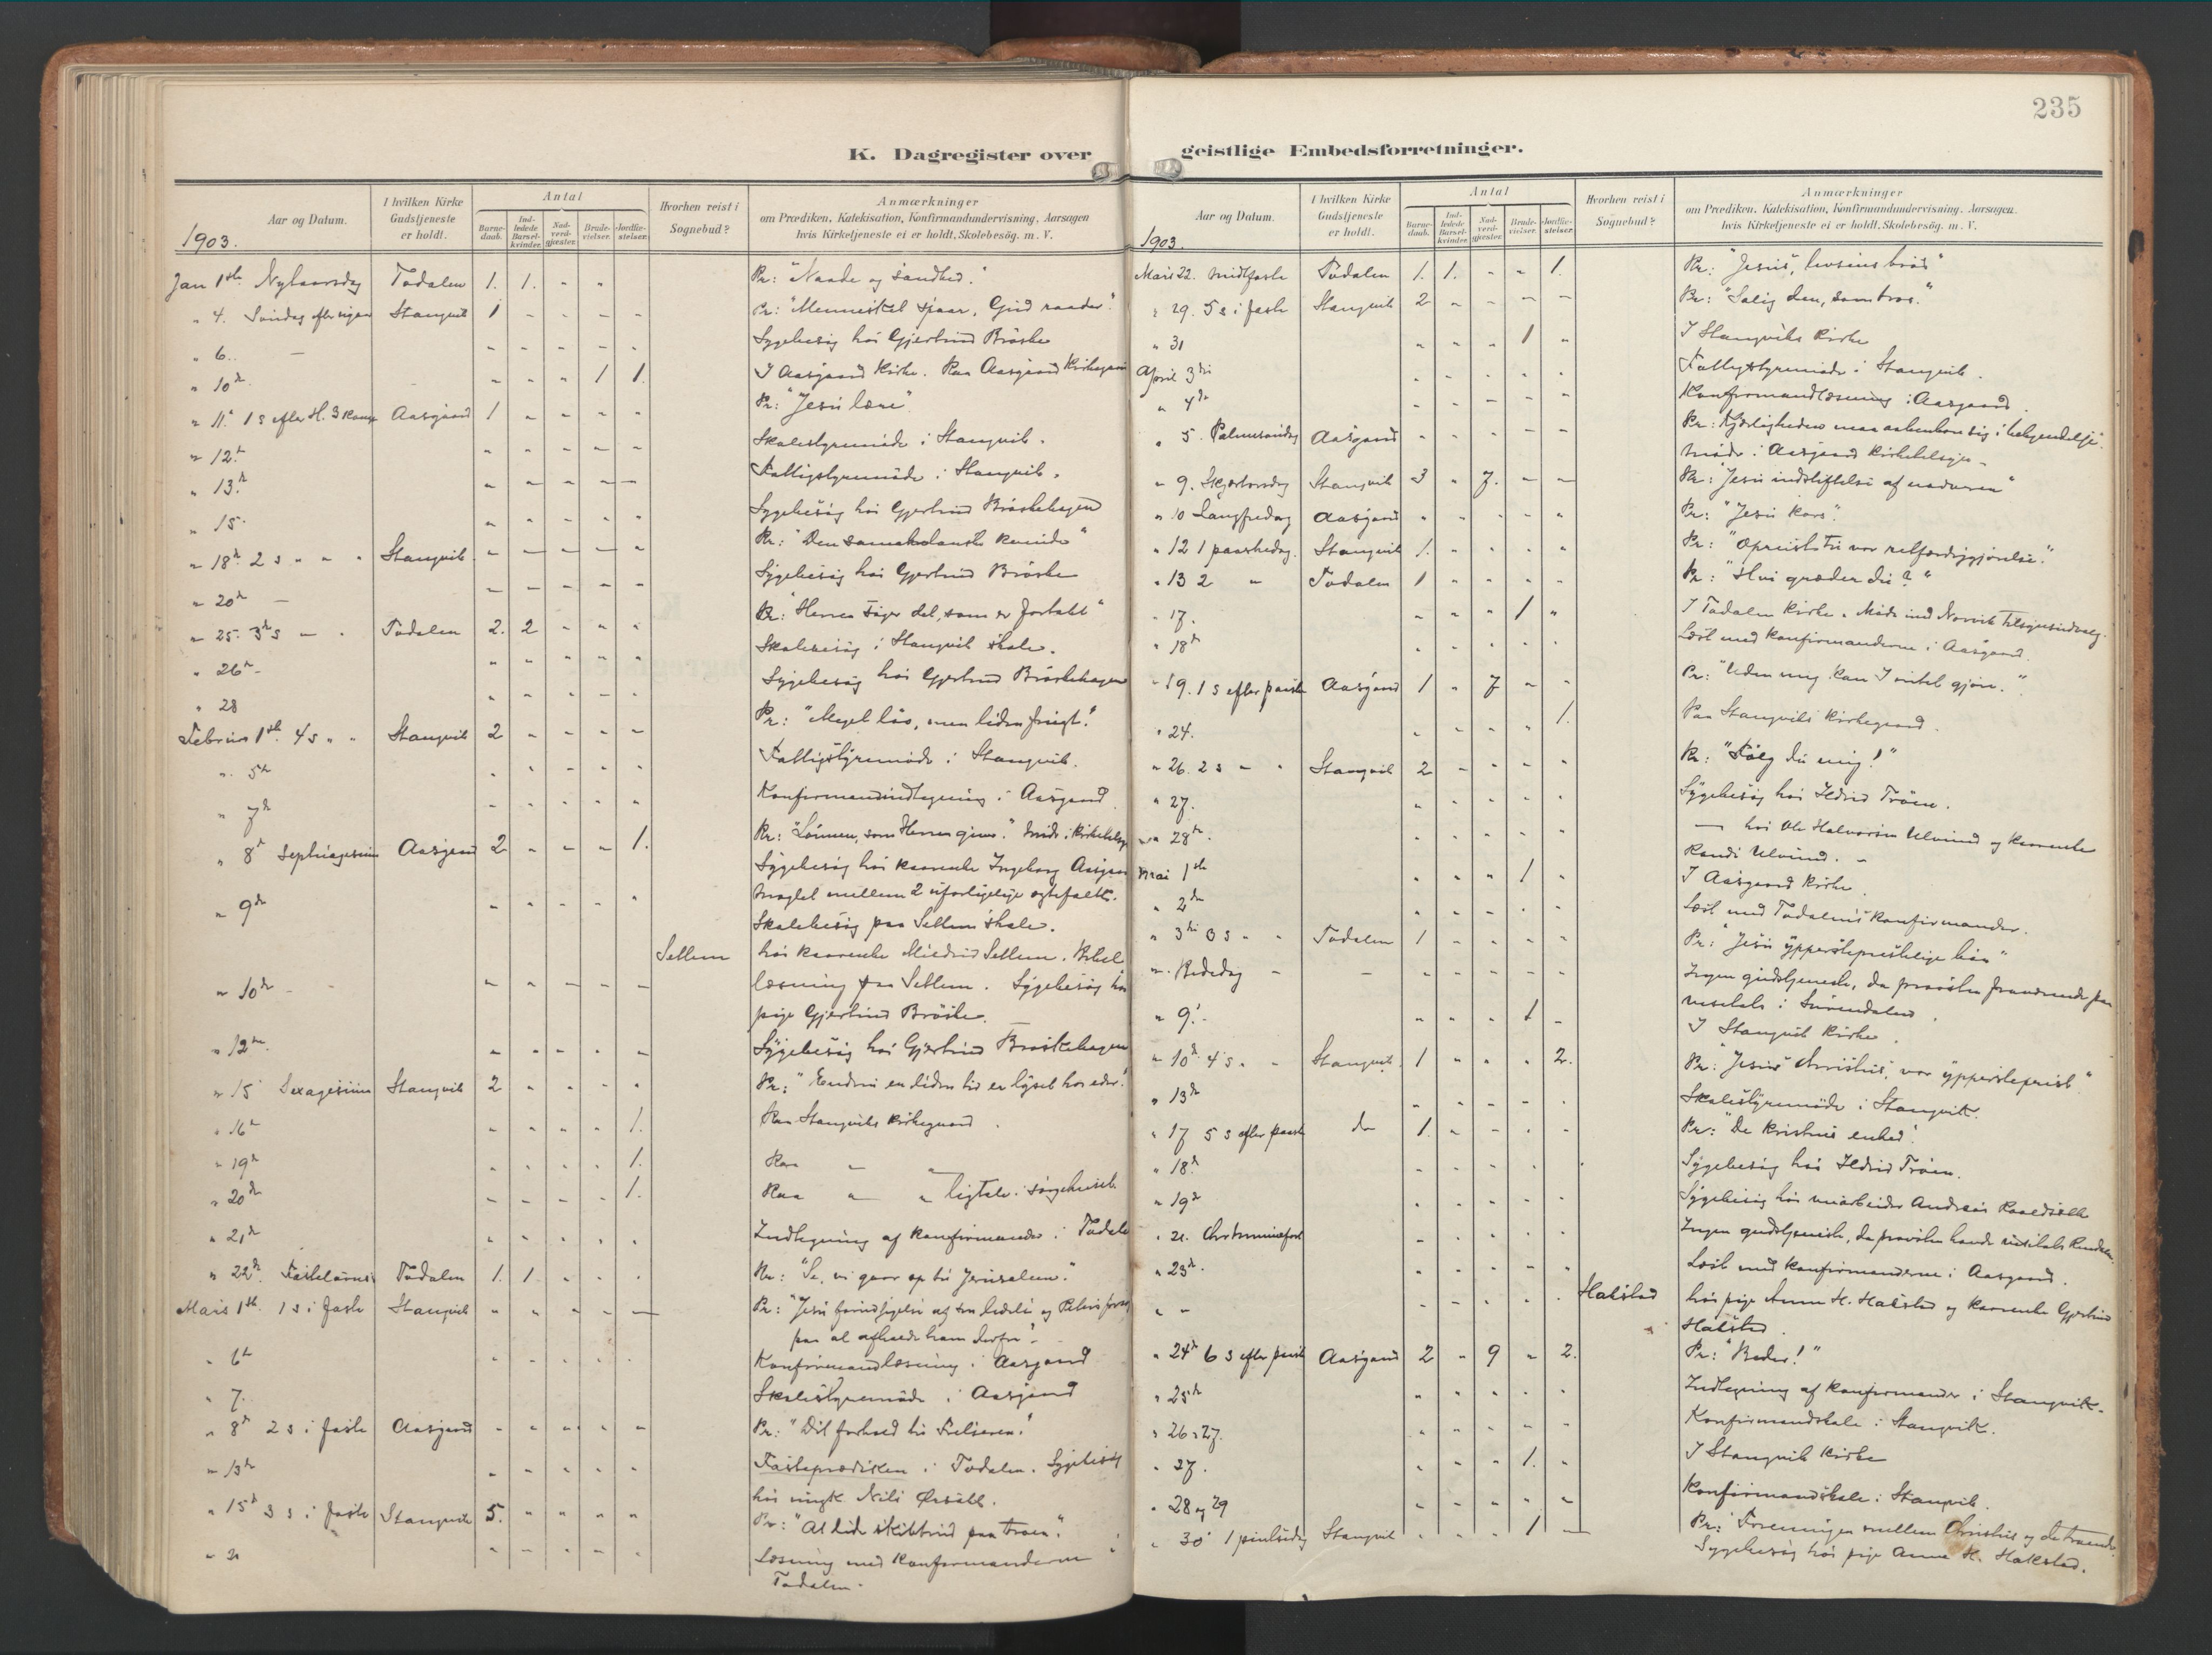 235
K. Dagregister over
geistlige Embedsforretninger.
Aar og Datum.
I hvilken Kirke Gudstjeneste er holdt.
Antal
Barnedaab.
Indledede Barselkvinder.
Nadverdgjæster.
Brudevielser.
Jordfæstelser.
Hvorhen reist i Sognebud?
Anmærkninger
om Prædiken, Katekisation, Konfirmandundervisning, Aarsagen
hvis Kirketjeneste ei er holdt, Skolebesög. m. V.
1903.
Jan 1ste Nytaarsdag Todalen 1. 1. " " Pr: "Naade og sandhed."
" 4. Søndag efter Stangvik 1 - - - - Pr: "Mennesket spaar, Gud raader".
" 6. - Sygebesøg hos Gjertrud Brøske
" 10de - - - 1 1. I Aasgaard Kirke. Paa Aasgaard Kirkegaard
" 11te 1 s efter H. 3 Kong Aasgaard 1 - - - - Pr: "Jesu lære".
" 12te Skolestyremøde i Stangvik.
" 13de Fattigstyremøde i Stangvik.
" 15. Sygebesøg hos Gjertrud Brøskehagen
" 18de 2 s " " " Stangvik - - - - - Pr: "Den samaritanske kvinde"
" 20de - Sygebesøg hos Gjertrud Brøske
" 25. 3de s - " Todalen 2. 2 - - - Pr: "Herren søger det, som er fortabt"
" 26de - Skolebesøg i Stangvik skole.
" 28 Sygebesøg hos Gjertrud Brøskehagen
Februar 1ste 4 s " " Stangvik 2 - - - - Pr: "Meget løv, men liden frugt."
" 5te Fattigstyremøde i Stangvik.
" 7de Konfirmandindtegning i Aasgaard.
" 8de Septuagesima Aasgaard 2 - - - 1. Pr: "Lønnen, som Herren giver."
" 9de Sygebesøg hos kaarenke Ingeborg Aasgaard
Mæglet mellem 2 uforligelige egtefolk.
Skolebesøg paa Settem skole.
Settem hos kaarenke Mildrid Settem. Bibel
" 10de - læsning paa Settem. Sygebesøg hos
pige Gjertrud Brøske.
" 12te. Sygebesøg hos Gjertrud Brøskehagen
" 15 Sexagesima Stangvik 2 - - - - Pr: "Endnu en liden tid er lyset hos eder."
" 16de - - - - 1. Paa Stangviks Kirkegaard.
" 19de - - - - 1. Paa - "
" 20de - - - - 1. Paa - " ligtale i sørgehuset.
" 21de Indtegning af konfirmander i Todalen
" 22de. Fastelavns Todalen 1. 1 - - - Pr: "Se, vi gaar op til Jerusalem."
Mars 1ste. 1 s i faste Stangvik - - - - - Pr: "Jesu forudsigelse af sin lidelse og Peters forsøg
paa at afholde ham derfra".
" 6te Konfirmandlæsning i Aasgaard
" 7. Skolestyremøde i Aasgaard
" 8de 2 s i faste Aasgaard - - - - - Pr: "Dit forhold til Frelseren."
" 13de Fasteprædiken i Todalen. Sygebesøg
hos ungk. Nils Ørsahl.
" 15de 3 s i faste Stangvik 5. - - - - Pr: "At lide skibbrud paa troen."
" 21 Læsning med konfirmanderne i
Todalen.
1903.
Mars 22. Midtfaste Todalen 1. 1. - - 1. Pr: "Jesus, livsens brød"
" 29. 5 s i faste Stangvik 2 - - - - Pr: "Salig den, som tror."
" 31 - - - 1 - I Stangviks Kirke
April 3die Fattigstyremøde i Stangvik.
" 4de Konfirmandlæsning i Aasgaard.
" 5. Palmesøndag Aasgaard - - - - - Pr: Kjærligheden maa aabenbare sig i bekjendelse".
Møde i Aasgaard Kirketilsyn.
" 9. Skjærtorsdag Stangvik 3 " 7. - - Pr: "Jesu indstiftelse af nadveren"
" 10 Langfredag Aasgaard - - - - - Pr: "Jesu kors".
" 12 1 paaskedag. Stangvik 1. - - - - Pr: "Opreist til vor retfærdiggjørelse".
" 13 2 " Todalen 1 - - - - Pr: "Hvi græder du?"
" 17. - - - 1 - I Todalen Kirke.
" 18de Læst med konfirmanderne i Aasgaard.
" 19. 1 s efter paaske Aasgaard 1 - 7 - - Pr: "Uden mig kan I intet gjøre."
" 24. - - - - 1. Paa Stangviks Kirkegaard.
" 26. 2 s - " Stangvik 2 - - - - Pr: "Følg du mig!"
" 27. Sygebesøg hos Ildrid Trøen.
" 28de. - hos Ole Halvorsen Ulvund og kaarenke
Randi Ulvund. -
Mai 1ste - - - 1 - I Aasgaard Kirke.
" 2den Læst med Todalens konfirmander.
" 3die 3 s - " Todalen 1 - - - - Pr: "Jesu ypperstepræstelige bøn"
" Bededag - - Ingen gudstjeneste, da provsten fraværende paa
visitats i Surendalen.
" 9. - - - - 1 - I Stangvik Kirke.
" 10de 4 s. - Stangvik 1 - - - 2. Pr: "Jesus Christus, vor ypperstepræst."
" 13de Skolestyremøde i Stangvik.
" 17 5 s efter paaske do 1. - - - - Pr: "De kristnes enhed".
" 18de Sygebesøg hos Ildrid Trøen.
" 19de Sygebesøg hos veiarbeider Andreas
" 21. Christi himmelfart Ingen gudstjeneste, da provsten havde visitats
" 23de. Læst med konfirmanderne i Aasgaard.
" - Halstad hos pige Anne H. Halstad og kaarenke Gjertrud
Halstad.
" 24de 6 s efter paaske Aasgaard 2 - 9 - 2. Pr: "Beder!"
" 25de Indtegning af konfirmander i Stangvik.
" 26 27. Konfirmandskole i Stangvik.
" 27. - - - 1. - I Stangvik Kirke
" 28 og 29 Konfirmandskole i Stangvik.
" 30 1 pintsedag Stangvik - - - 1 - Pr: "Foreningen mellem Christus og de troende.
Sygebesøg hos pige Anne H. Halstad.